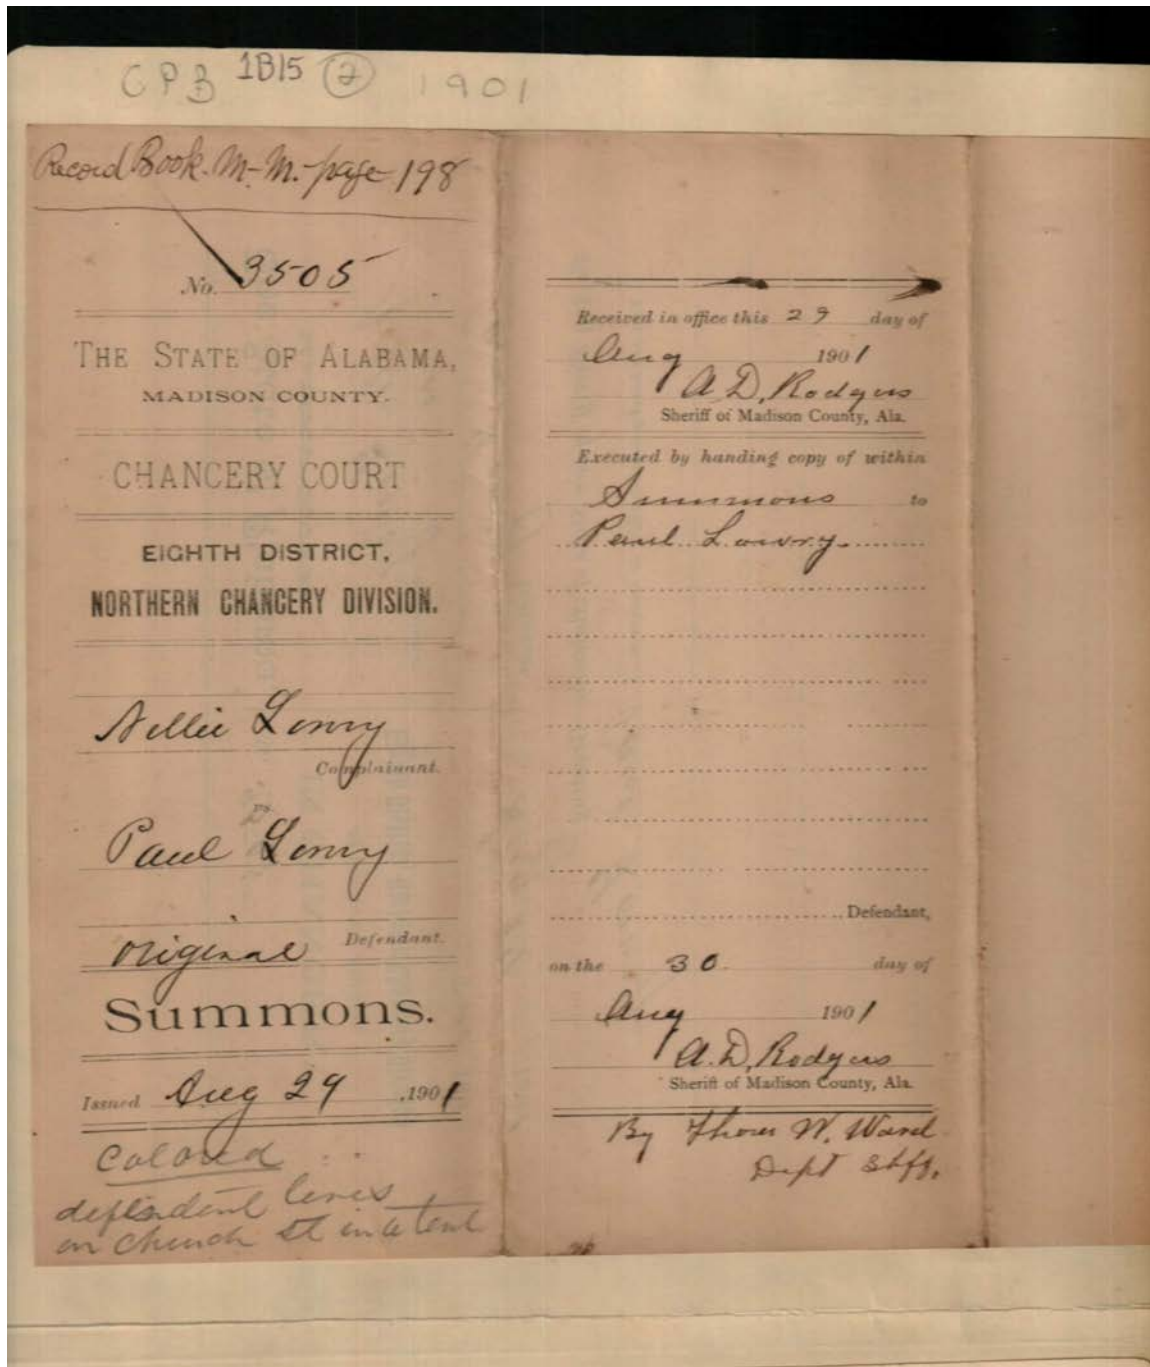 CPB 1B15 2 1901
Record Book. M-M.-page 198
No. 3505
THE STATE OF ALABAMA,
MADISON COUNTY.
CHANCERY COURT
EIGHTH DISTRICT,
NORTHERN CHANCERY DIVISION.
Nellie Lowry
Complainant.
vs.
Paul Lowry
Original Defendant.
Summons.
Issued Aug 29 ,1901
Colored
defendent lives
on Church St in a tent
Received in office this 29 day of
Aug 1901
A. D. Rodgers
Sheriff of Madison County, Ala.
Executed by handing copy of within
Summons to
Paul Lowry
Defendant,
on the 30 day of
Aug 1901
A. D. Rodgers
Sheriff of Madison County, Ala.
By W. Ward
Dept Shff.